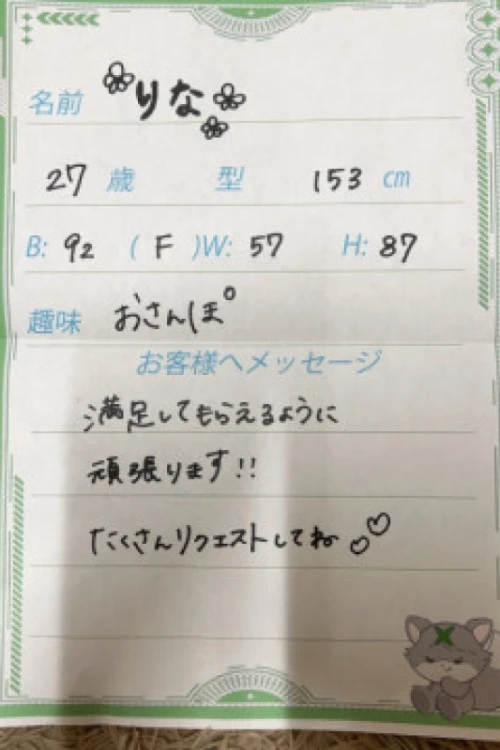 名前 りな
27 歳 型 153 cm
B: 92 ( F )W: 57 H: 87
趣味 おさんぽ
お客様へメッセージ
満足してもらえるように
頑張ります!!
たくさんリクエストしてね